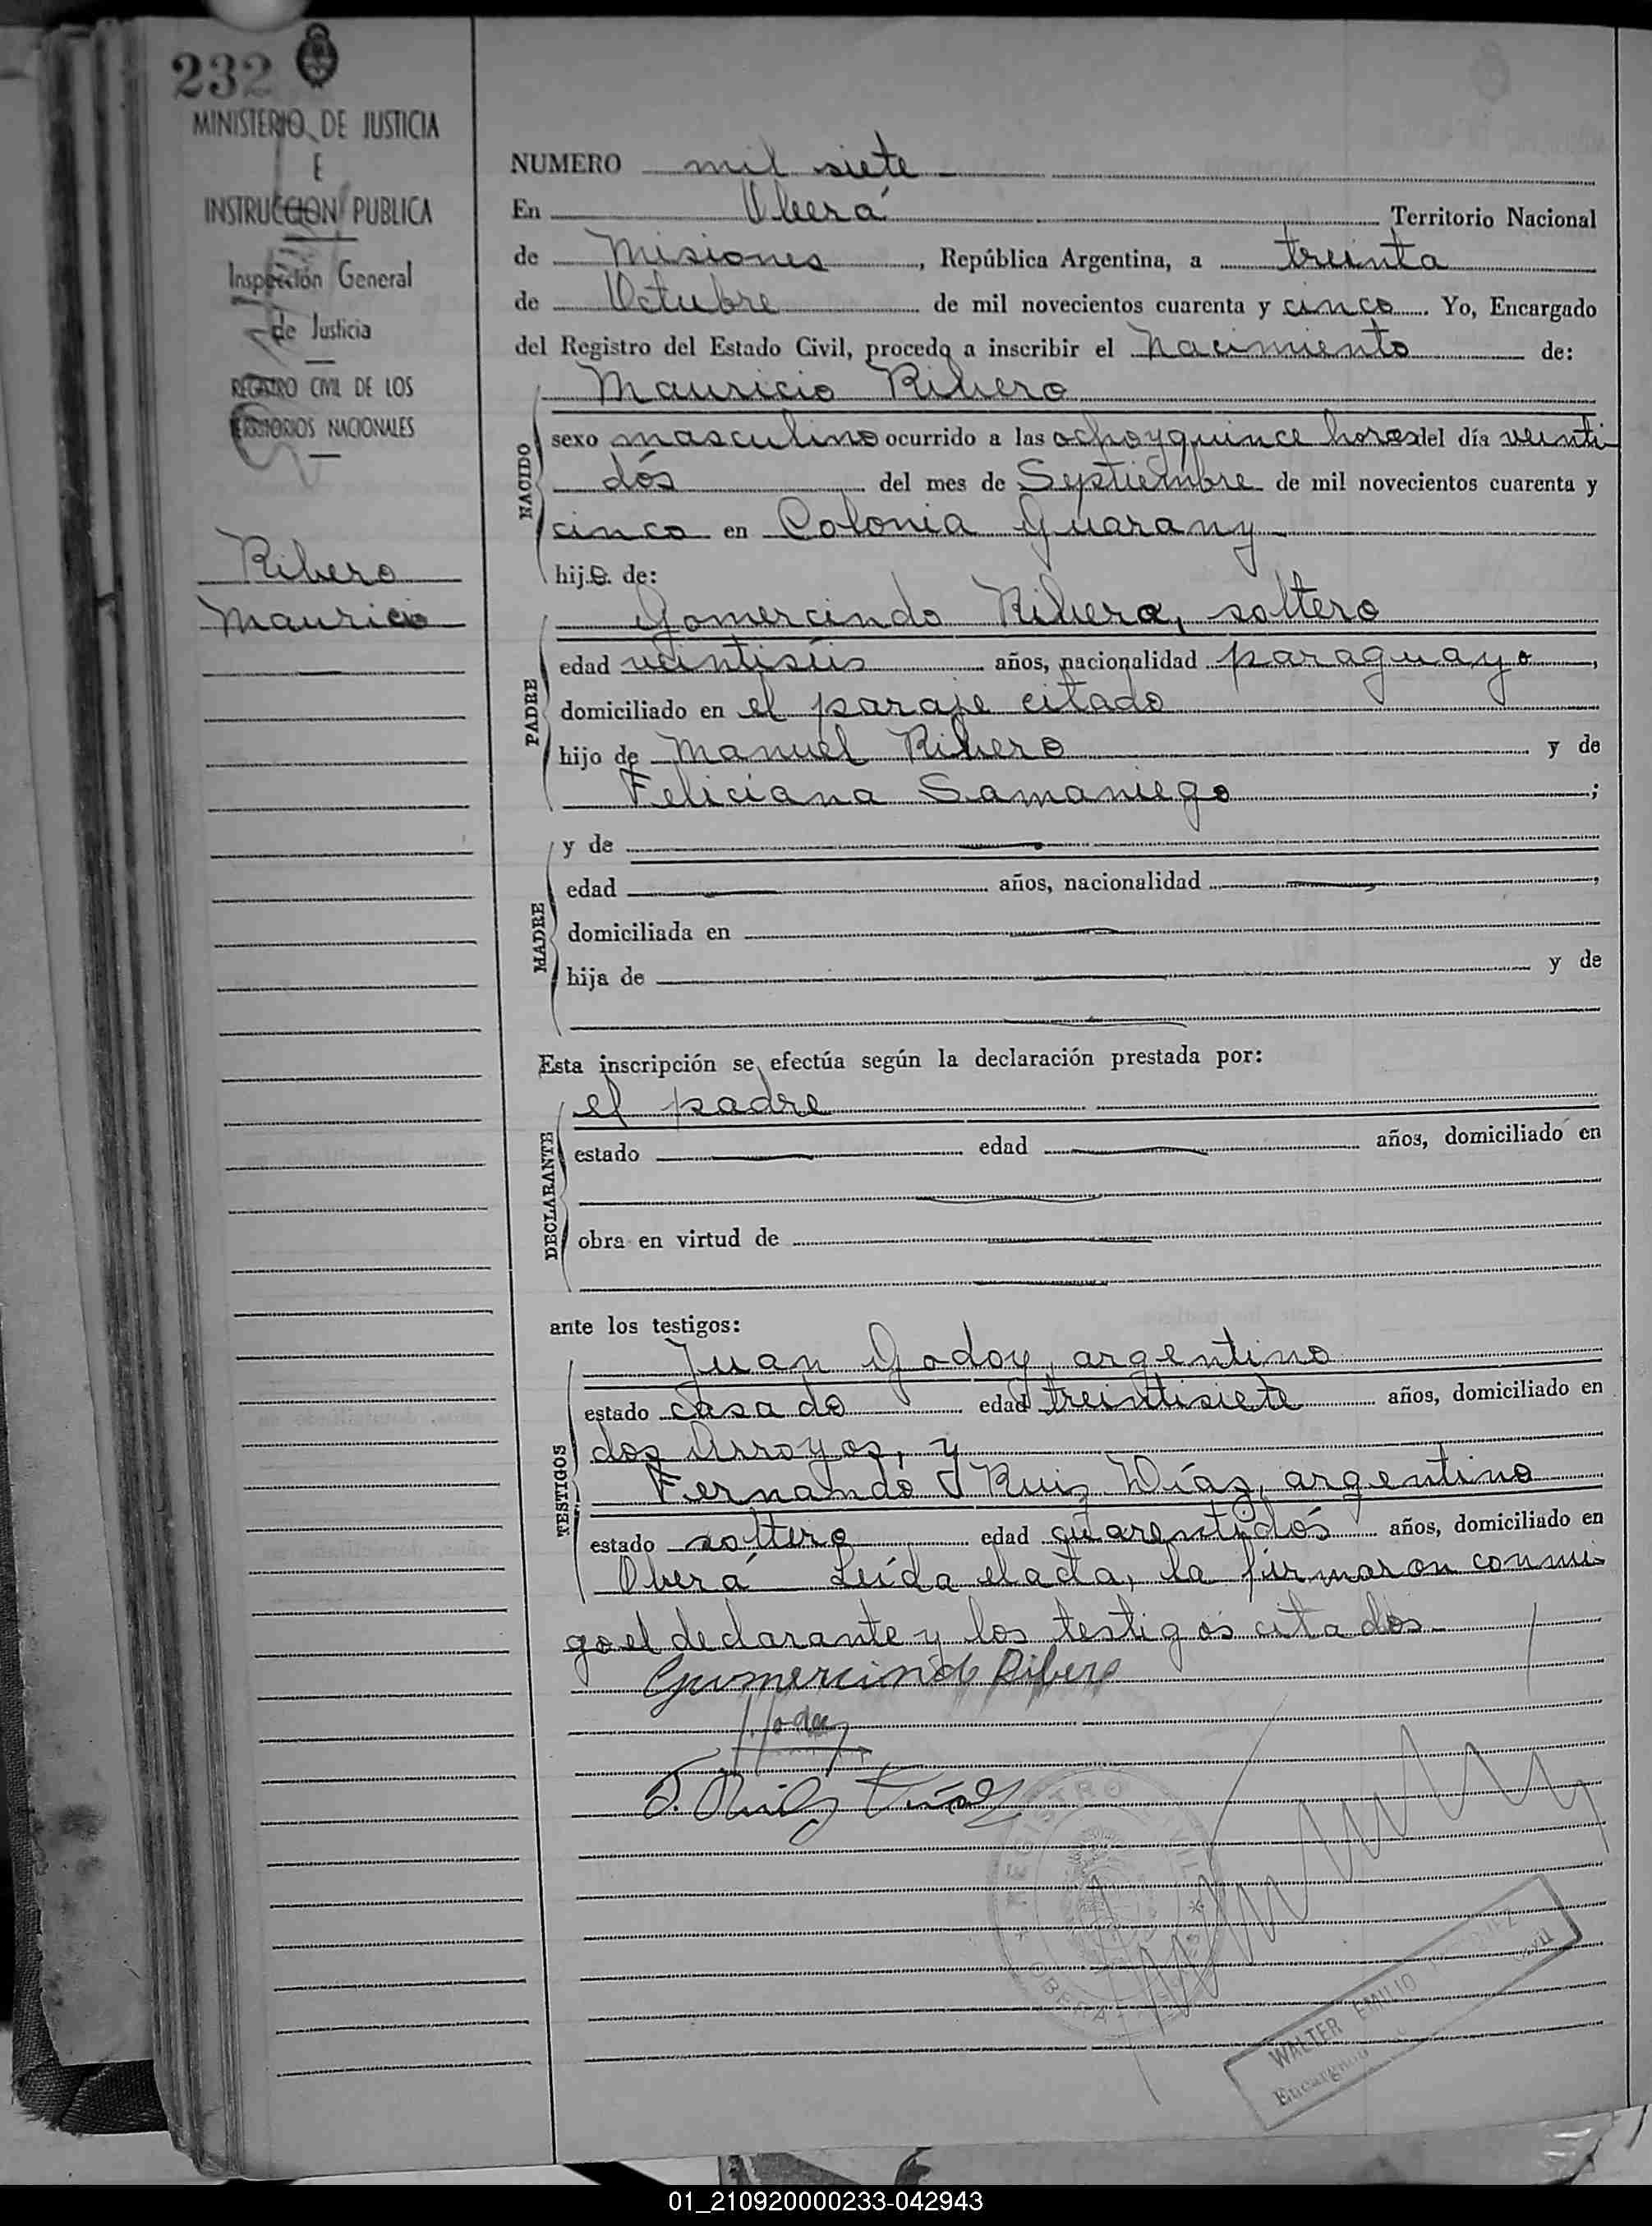 232
MINISTERIO DE JUSTICIA
E
INSTRUCCION PUBLICA
Inspección General
de Justicia
REGISTRO CIVIL DE LOS
TERRITORIOS NACIONALES
Ribero
Mauricio
NUMERO mil siete
En Oberá Territorio Nacional
de Misiones, República Argentina, a treinta
de Octubre de mil novecientos cuarenta y cinco. Yo, Encargado
del Registro del Estado Civil, procedo a inscribir el Nacimiento de:
NACIDO
Mauricio Ribero
sexo masculino ocurrido a las ocho y quince horas del día veinti
dós del mes de Septiembre de mil novecientos cuarenta y
cinco en Colonia Guarany
hijo de:
PADRE
Gomercindo Ribero, soltero
edad veintiseis años, nacionalidad paraguayo,
domiciliado en el paraje citado
hijo de Manuel Ribero y de
Feliciana Samaniego;
MADRE
y de
edad años, nacionalidad ,
domiciliada en
hija de y de
Esta inscripción se efectúa según la declaración prestada por:
DECLARANTE
el padre
estado edad años, domiciliado en
obra en virtud de
ante los testigos:
TESTIGOS
Juan Godoy, argentino
estado casado edad treintisiete años, domiciliado en
dos Arroyos, y
Fernando Ruiz Díaz, argentino
estado soltero edad cuarentidós años, domiciliado en
Oberá Leída el acta, la firmaron conmi
go el declarante y los testigos citados
Gumercindo Ribero
J. Godoy
F. Ruiz Díaz
REGISTRO CIVIL
OBERA
WALTER EMILIO
Encargado Civil
01_210920000233-042943